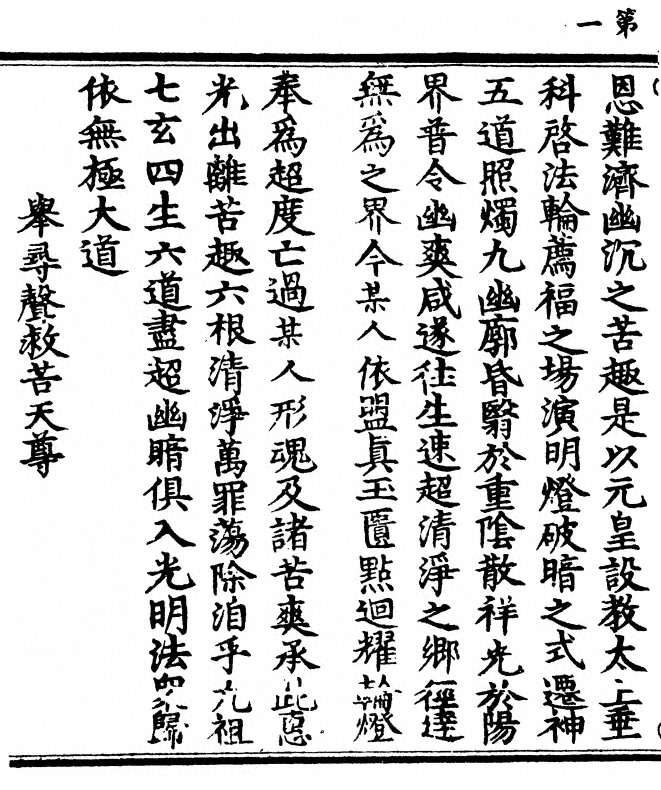 第一
恩難濟幽沉之苦趣是以元皇設教太上垂
科啓法輪薦福之場演明燈破暗之式遷神
五道照燭九幽廓昏翳於重陰散祥光於陽
界普令幽爽咸遂往生速超清淨之鄉徑達
無爲之界今某人依盟眞玉匱點迴耀輪燈
奉爲超度亡過某人形魂及諸苦爽承此惠
光出離苦趣六根清淨萬罪蕩除洎乎九祖
七玄四生六道盡超幽暗俱入光明法歸
依無極大道
舉尋聲救苦天尊